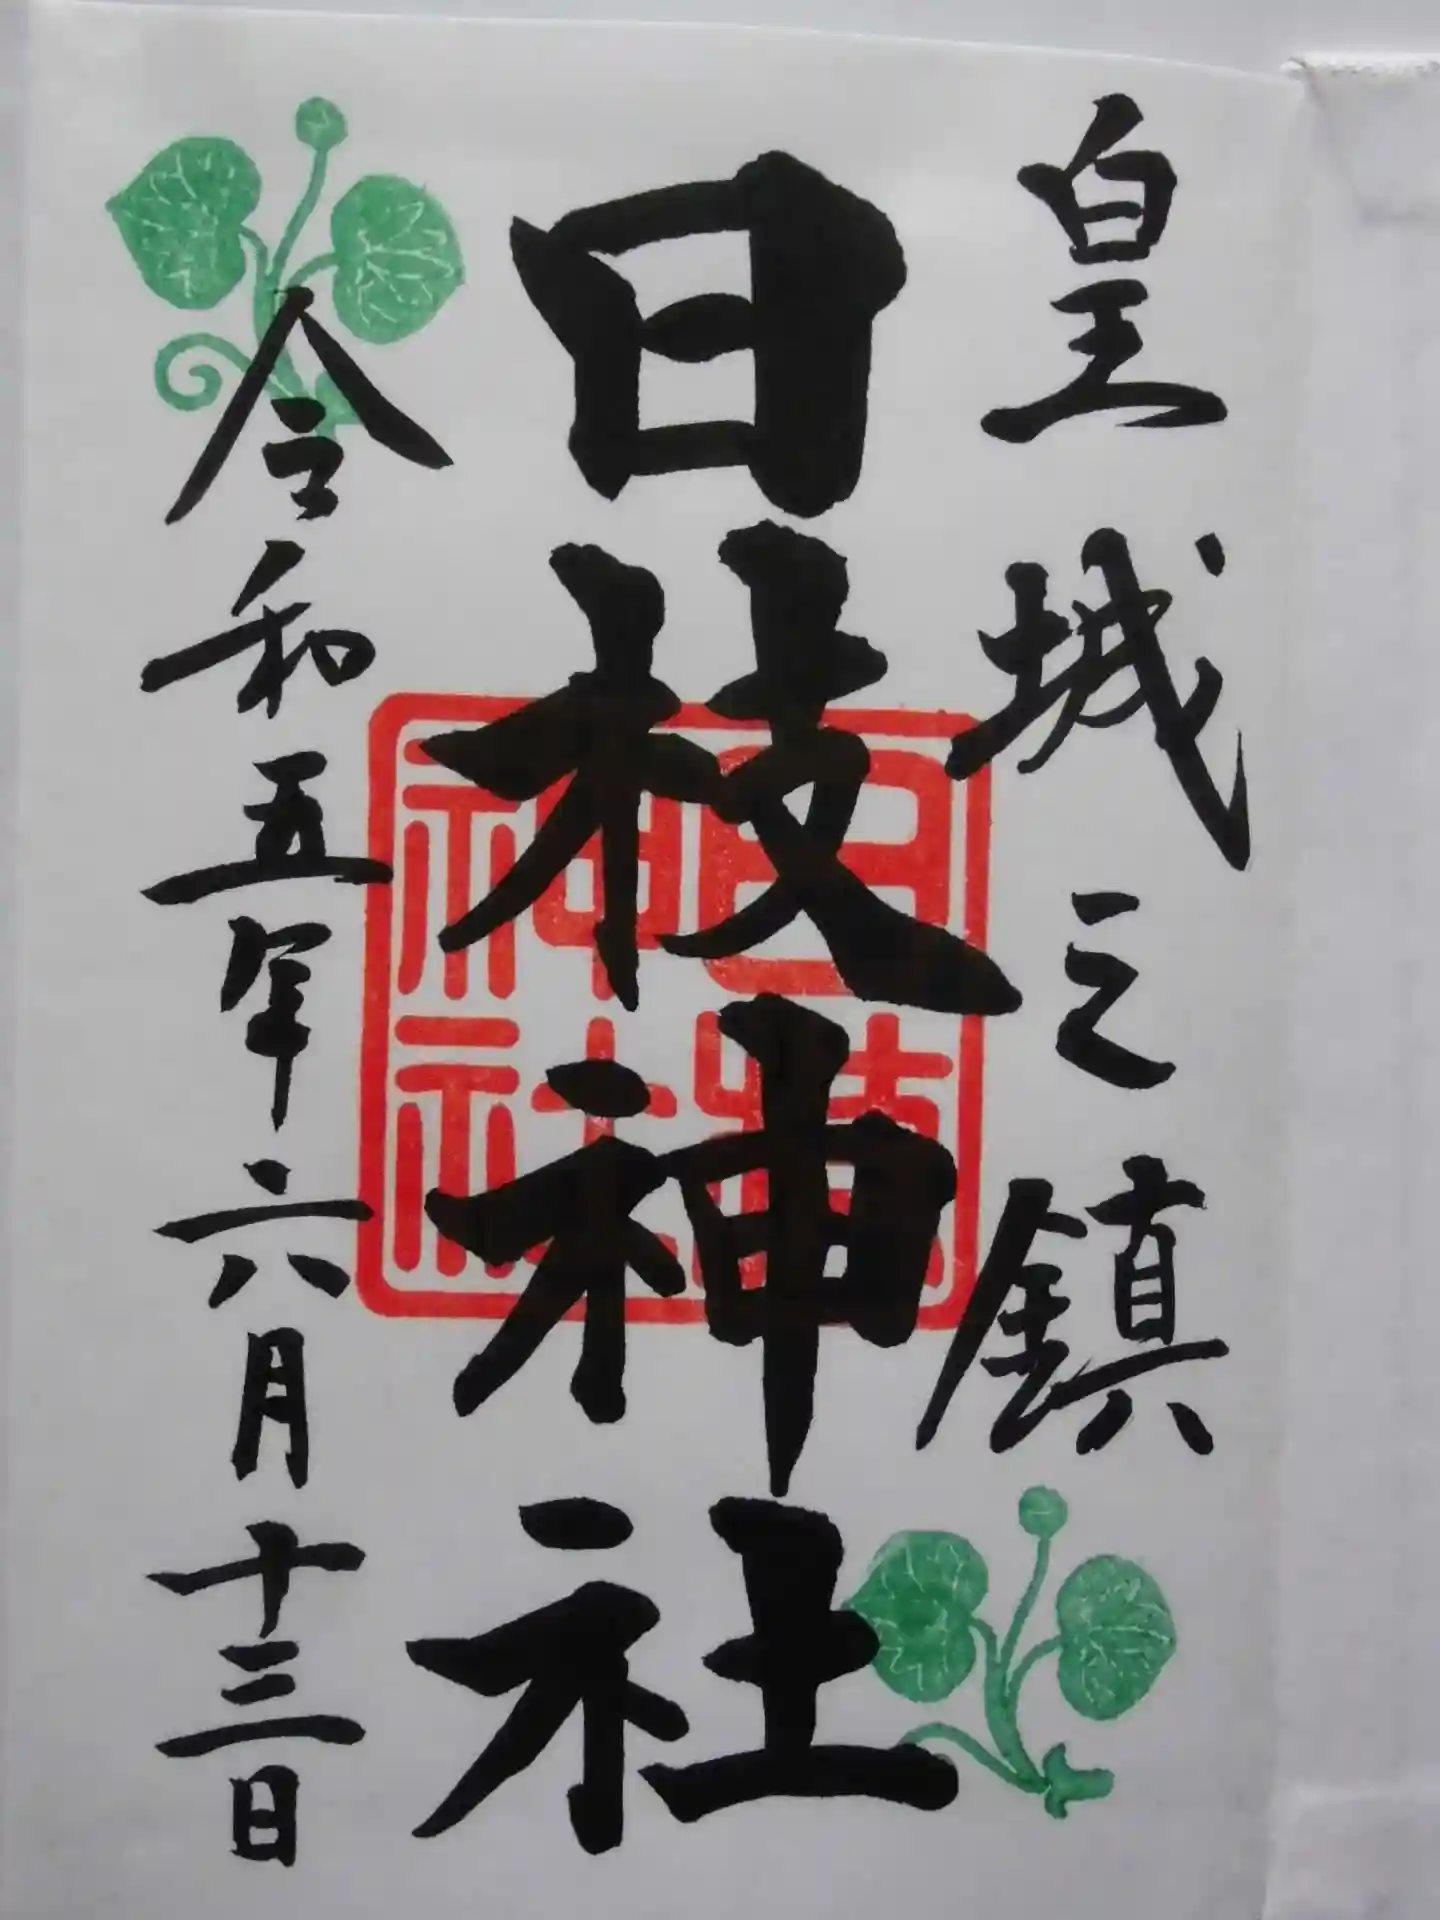 皇城之鎮
日枝神社
令和五年六月十三日
日枝神社